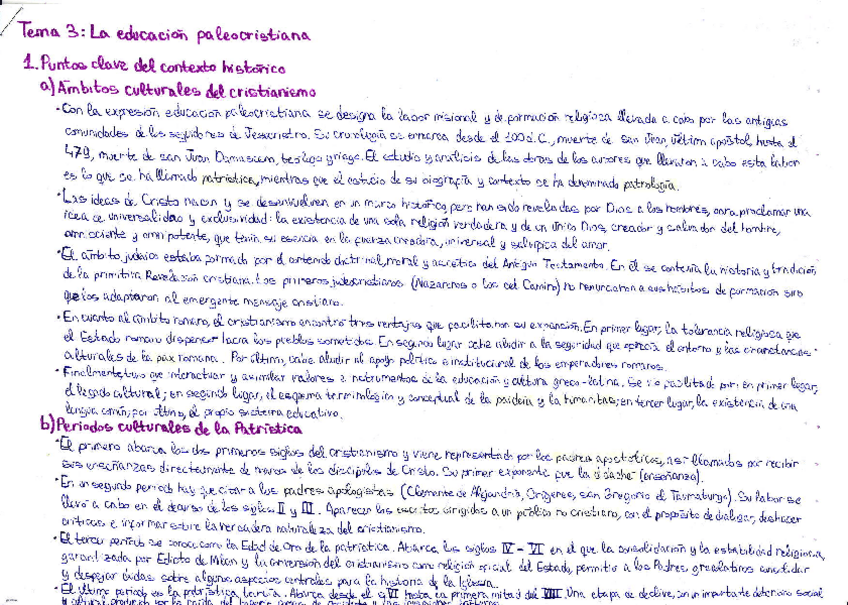 Tema 3: La educación paleocristiana
1. Puntos clave del contexto histórico
a) Ámbitos culturales del cristianismo
• Con la expresión educación paleocristiana se designa la labor misional y de formación religiosa llevada a cabo por las antiguas
comunidades de los seguidores de Jesucristo. Su cronología se enmarca desde el 100 d.C., muerte de san Juan, último apóstol, hasta el
479, muerte de san Juan Damasceno, teólogo y mago. El estudio y análisis de las obras de los autores que llevaron a cabo esta labor
es lo que se ha llamado patrística, mientras que el estudio de su biografía y contexto se ha denominado patrología.
• Las ideas de Cristo nacen y se desenvuelven en un marco histórico, pero han sido reveladas por Dios a los hombres, para proclamar una
idea de universalidad y exclusividad: la existencia de una sola religión verdadera y de un único Dios, creador y salvador del hombre,
omnisciente y omnipotente, que tenía su esencia en la fuerza creadora, universal y salvífica del amor.
• El ámbito judáico estaba formado por el contenido doctrinal, moral y ascético del Antiguo Testamento. En él se contenía la historia y tradición
de la primitiva Revelación cristiana. Los primeros judeocristianos (Nazarenos o los del Camino) no renunciaron a sus hábitos de formación sino
que los adaptaron al emergente mensaje cristiano.
• En cuanto al ámbito romano, el cristianismo encontró tres ventajas que facilitaron su expansión. En primer lugar, la tolerancia religiosa que
el Estado romano dispensó hacia los pueblos sometidos. En segundo lugar cabe aludir a la seguridad que ofrecía el entorno y las circunstancias
culturales de la pax romana. Por último, cabe aludir al apoyo político e institucional de los emperadores romanos.
• Finalmente, tuvo que interactuar y asimilar valores e instrumentos de la educación y cultura greco-latina. Se vio facilitado por: en primer lugar,
el legado cultural; en segundo lugar, el esquema terminológico y conceptual de la paideia y la humanitas; en tercer lugar, la existencia de una
lengua común; por último, el propio sistema educativo.
b) Periodos culturales de la Patrística
• El primero abarca los dos primeros siglos del cristianismo y viene representado por los padres apostólicos, así llamados por recibir
sus enseñanzas directamente de manos de los discípulos de Cristo. Su primer exponente fue la didaché (enseñanza).
• En un segundo periodo hay que citar a los padres apologistas (Clemente de Alejandría, Orígenes, san Gregorio el Taumaturgo). Su labor se
llevó a cabo en el decurso de los siglos II y III. Aparecen los escritos dirigidos a un público no cristiano, con el propósito de dialogar, deshacer
críticas e informar sobre la verdadera naturaleza del cristianismo.
• El tercer periodo se conoce como la Edad de Oro de la patrística. Abarca los siglos IV - VI en el que la consolidación y la estabilidad religiosa,
garantizada por Edicto de Milán y la conversión del cristianismo como religión oficial del Estado, permitió a los Padres grecolatinos consolidar
y despejar dudas sobre algunos aspectos centrales para la historia de la Iglesia.
• El último periodo es la patrística tardía. Abarca desde el s.VI hasta la primera mitad del VIII. Una etapa de declive, con un importante deterioro social
y cultural producido por la caída del